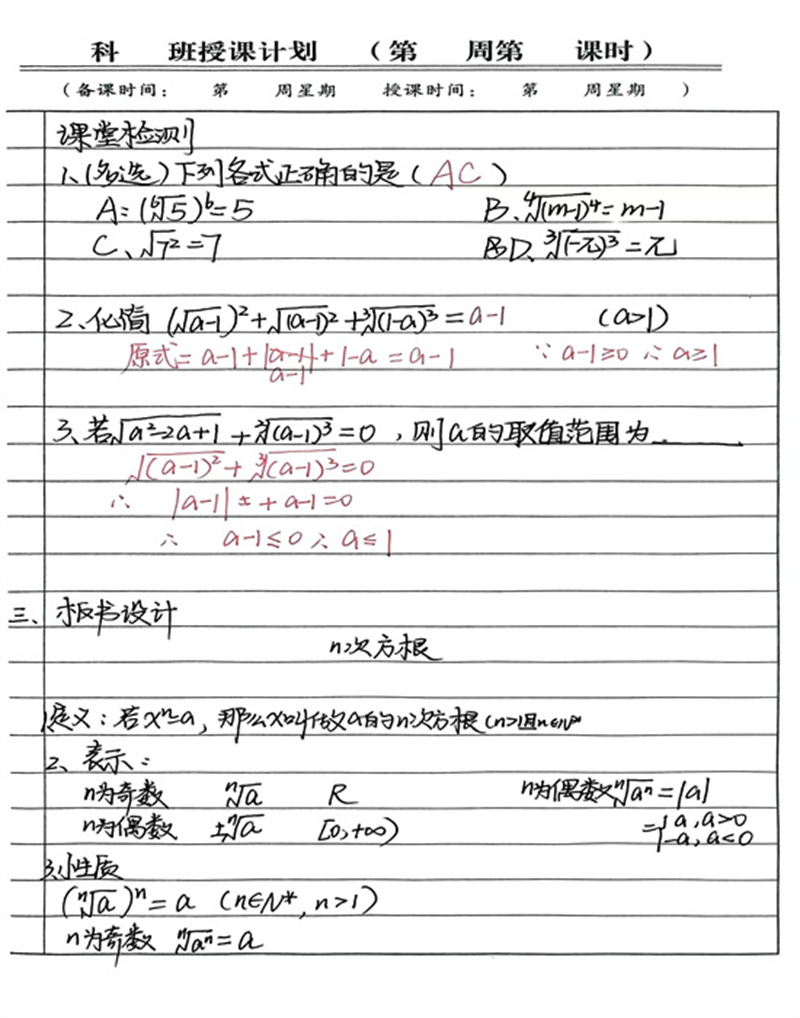 科 班授课计划 （第 周第 课时）
（备课时间： 第 周星期 授课时间： 第 周星期 ）
课堂检测
1、(多选) 下列各式正确的是（ AC ）
A: (⁶√5)⁶=5 B、⁴√(m-1)⁴=m-1
C、√7²=7 D、³√(-π)³=π
2、化简 (√a-1)²+√(a-1)²+³√(1-a)³=a-1 (a>1)
原式=a-1+|a-1|+1-a=a-1 ∵a-1≥0 ∴a≥1
a-1
3、若√a²-2a+1+³√(a-1)³=0，则a的取值范围为______
√(a-1)²+³√(a-1)³=0
∴ |a-1|+a-1=0
∴ a-1≤0∴a≤1
三、板书设计
n次方根
1定义：若xⁿ=a，那么x叫做a的n次方根(n>1且n∈N*
2、表示：
n为奇数 ⁿ√a R n为偶数ⁿ√aⁿ=|a|
n为偶数 ±ⁿ√a [0,+∞) ={a,a>0
-a,a<0
3、性质
(ⁿ√a)ⁿ=a (n∈N*,n>1)
n为奇数 ⁿ√aⁿ=a